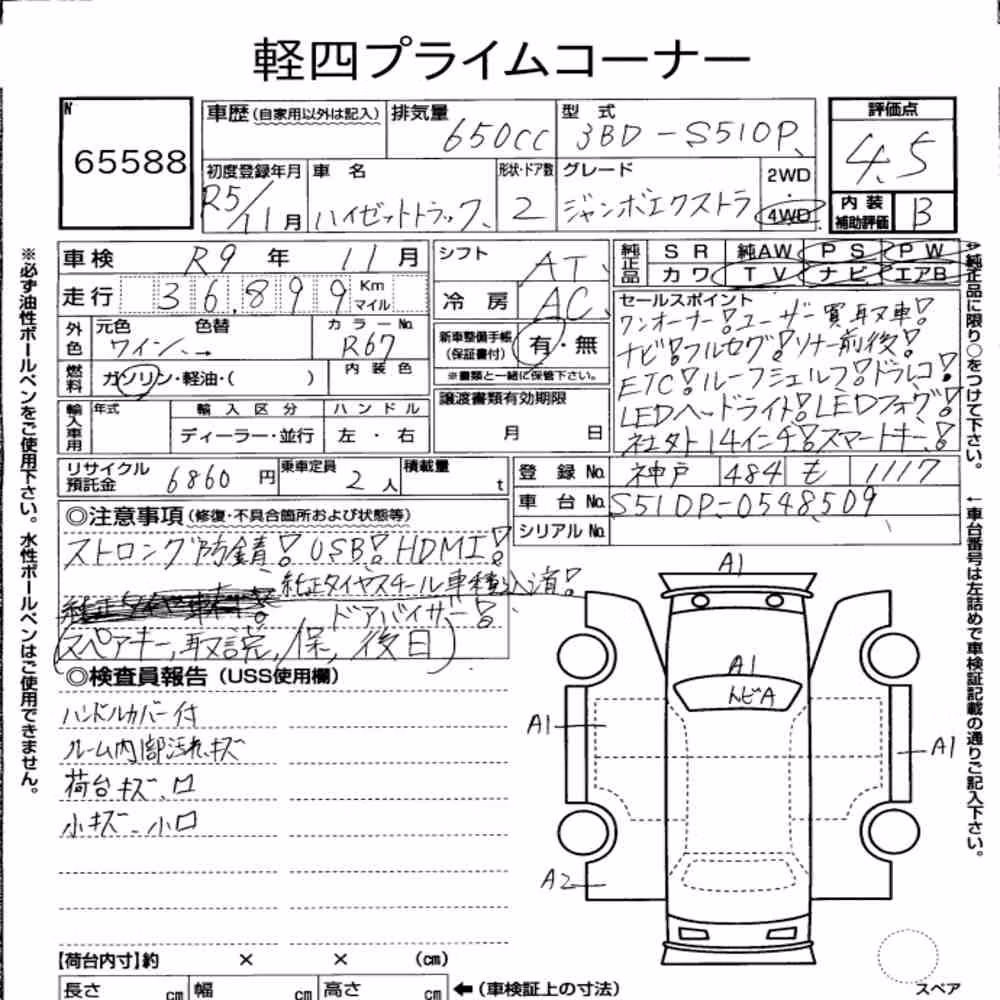 軽四プライムコーナー
№ 65588
車歴 (自家用以外は記入) 排気量 650cc 型式 3BD-S510P
評価点 4.5
初度登録年月 R5/11月 車名 ハイゼットトラック 形状・ドア数 2 グレード ジャンボエクストラ 2WD・4WD
内装補助評価 B
車検 R9年 11月
走行 36,899 Km マイル
外色 元色 ワイン 色替 → カラーNo. R67
燃料 ガソリン・軽油・( ) 内装色
輸入車用 年式 輸入区分 ディーラー・並行 ハンドル 左・右
シフト AT
冷房 AC
新車整備手帳 (保証書付) 有・無
※書類と一緒に保管下さい。
譲渡書類有効期限
月 日
純正品 SR 純AW PS PW
カワ TV ナビ エアB
セールスポイント
ワンオーナー!ユーザー買取車!
ナビ!フルセグ!ソナー前後!
ETC!ルーフシェルフ!ドラレコ!
LEDヘッドライト!LEDフォグ!
社外14インチ!スマートキー!
リサイクル預託金 6860円 乗車定員 2人 積載量 t
登録No. 神戸 484 も 1117
車台No. S510P-0548509
シリアルNo.
◎注意事項 (修復・不具合箇所および状態等)
ストロング防錆!USB!HDMI!
純正タイヤスチール車積込済!
ドアバイザー!
(スペアキー,取説,保,後日)
◎検査員報告 (USS使用欄)
ハンドルカバー付
ルーム内部汚れ、キズ
荷台キズ、凹
小キズ、小凹
A1
A1
トビA
A1
A1
A2
【荷台内寸】約 × × (cm)
長さ cm 幅 cm 高さ cm ←(車検証上の寸法)
スペア
※必ず油性ボールペンをご使用下さい。水性ボールペンはご使用できません。
↑純正品に限り○をつけて下さい。
←車台番号は左詰めで車検証記載の通りご記入下さい。